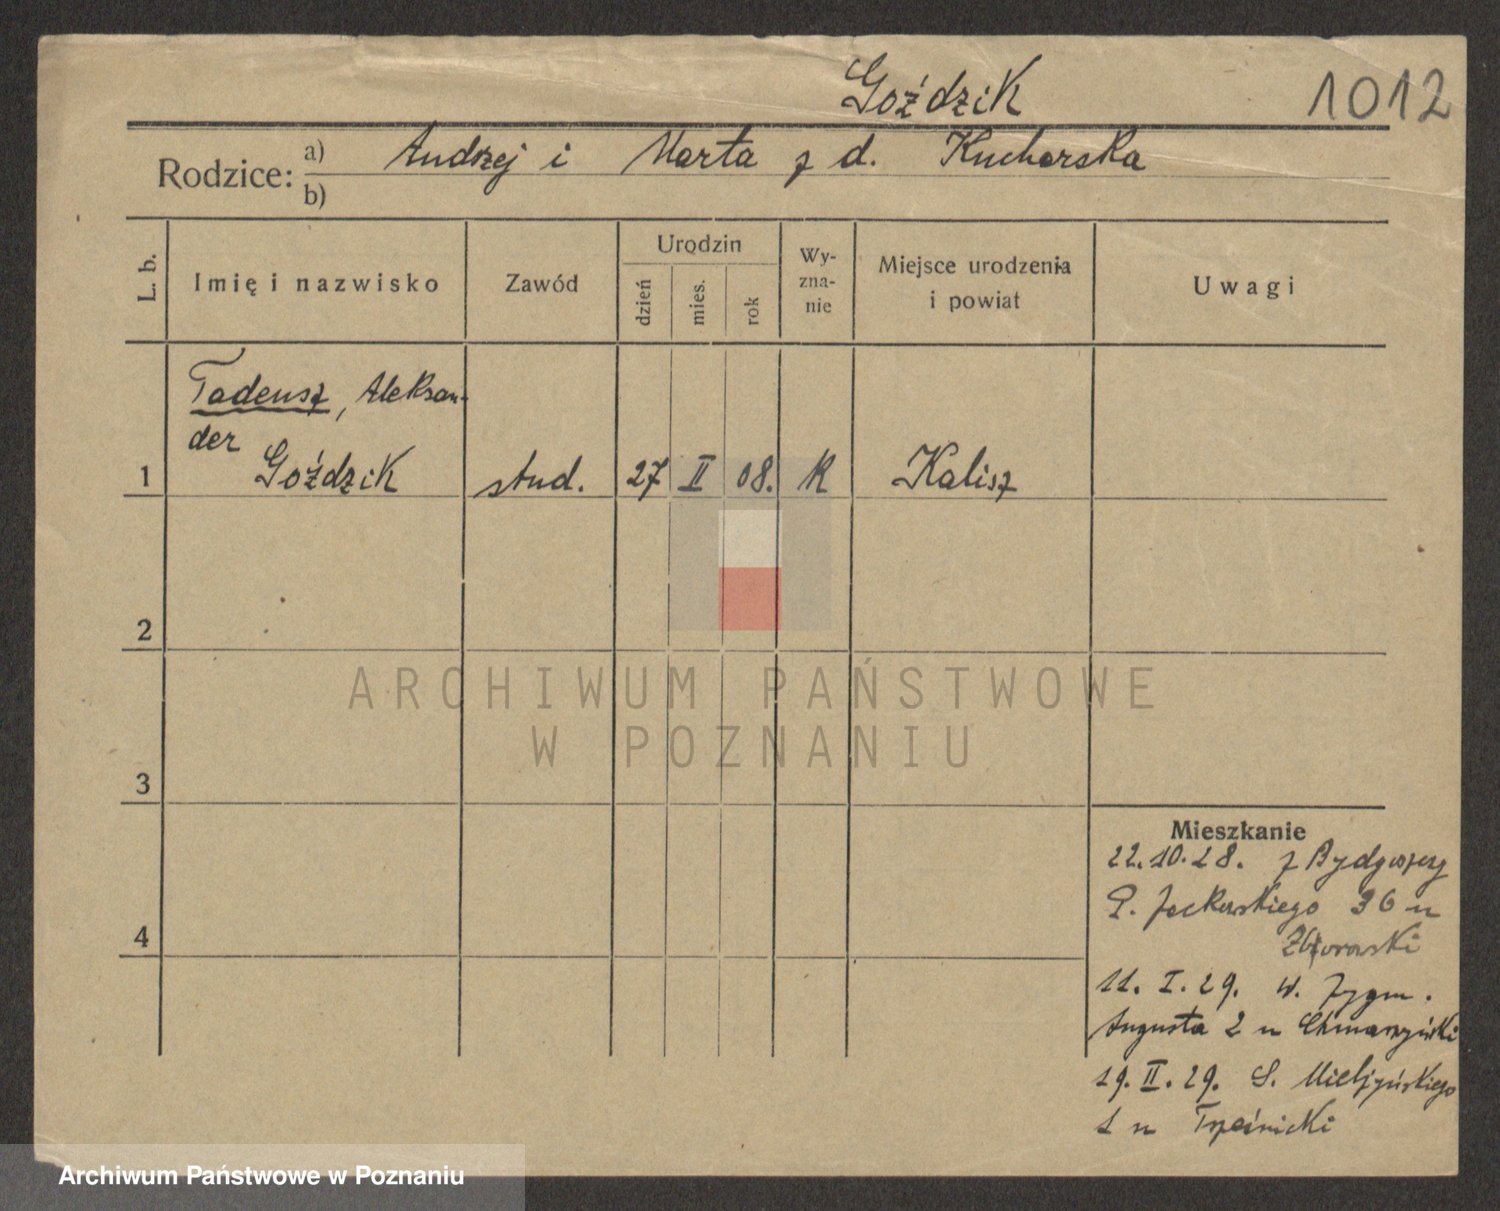 Goździk
1012
Rodzice: a) Andrzej i Marta z d. Kucharska
b)
L. b.
Imię i nazwisko
Zawód
Urodzin
dzień
mies.
rok
Wy-
zna-
nie
Miejsce urodzenia
i powiat
Uwagi
Tadeusz, Aleksan-
der
1 Goździk stud. 27 II 08. R Kalisz
2
3
4
ARCHIWUM PAŃSTWOWE
W POZNANIU
Mieszkanie
22.10.28. z Bydgoszczy
P. Jackowskiego 36 u
Zborowski
11. I. 29. W. Zygm.
Augusta 2 u
19. II. 29. S. Mielżyńskiego
1 u
Archiwum Państwowe w Poznaniu